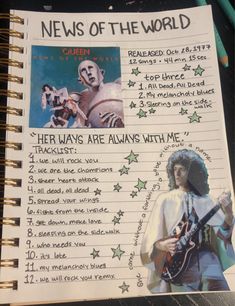 NEWS OF THE WORLD
QUEEN
NEWS OF THE WORLD
REALEASED: Oct 28, 1977
12 songs • 44 min 15 sec
top three
1. All Dead, All Dead
2. My melancholy blues
3. Sleeping on the side-
walk
"HER WAYS ARE ALWAYS WITH ME"
TRACKLIST:
1. we will rock you
2. we are the champions
3. sheer heart attack
4. all dead, all dead
5. spread your wings
6. fight from the inside
7. get down, make love
8. sleeping on the sidewalk
9. who needs you
10. it's late
11. my melancholy blues
12. we will rock you remix